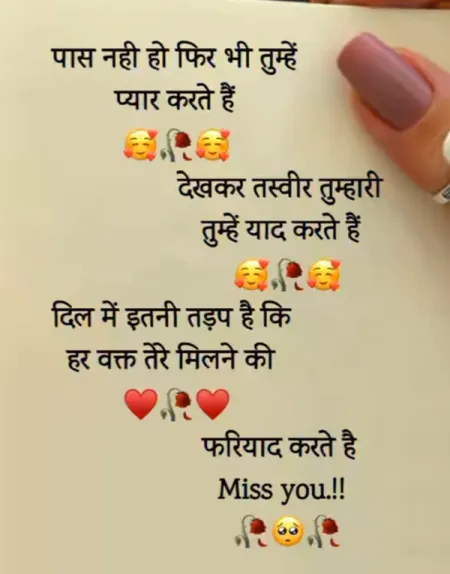 पास नही हो फिर भी तुम्हें
प्यार करते हैं
🥰🥀🥰
देखकर तस्वीर तुम्हारी
तुम्हें याद करते हैं
🥰🥀🥰
दिल में इतनी तड़प है कि
हर वक्त तेरे मिलने की
♥️🥀♥️
फरियाद करते है
Miss you.!!
🥀🥺🥀